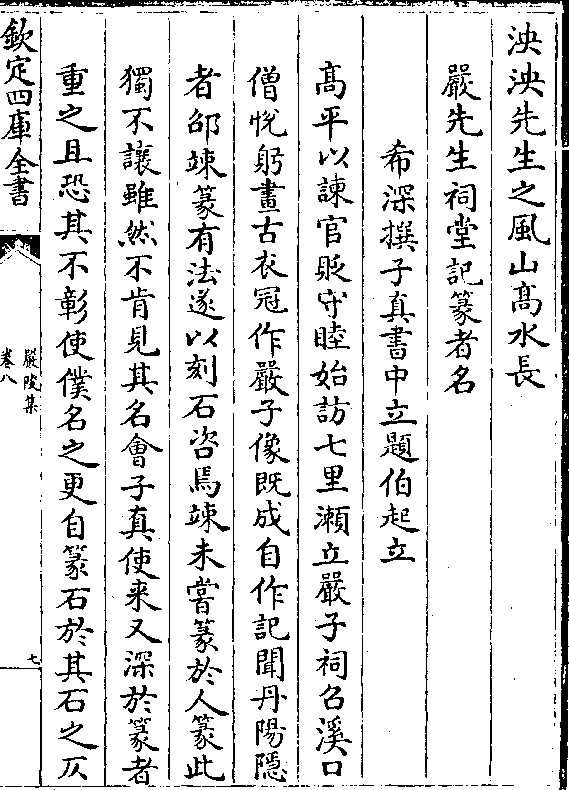 泱泱先生之風山高水長
嚴先生祠堂記篆者名
希深撰子真書中立題伯起立
髙平以諫官貶守睦始訪七里瀬立嚴子祠召溪口
僧悅躬畫古衣冠作嚴子像既成自作記聞丹陽隠
者邵竦篆有法遂以刻石咨焉竦未嘗篆於人篆此
獨不讓雖然不肯見其名會子真使来又深於篆者
重之且恐其不彰使僕名之更自篆石於其石之仄
欽定四庫全書
嚴陵集
卷八
七